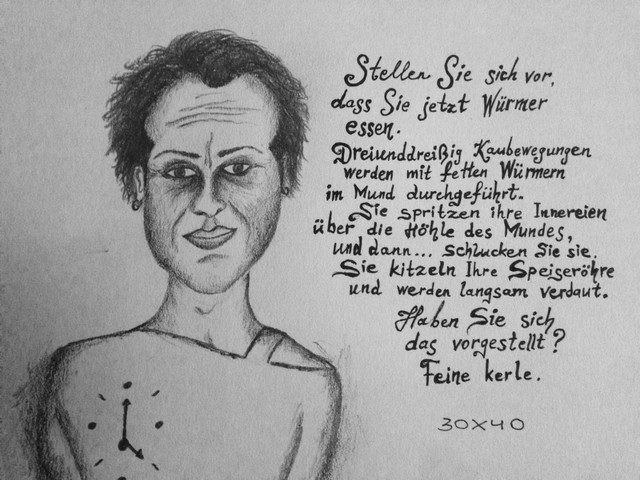 Stellen Sie sich vor,
dass Sie jetzt Würmer
essen.
Dreiunddreißig Kaubewegungen
werden mit fetten Würmern
im Mund durchgeführt.
Sie spritzen ihre Innereien
über die Höhle des Mundes,
und dann... schlucken Sie sie.
Sie kitzeln Ihre Speiseröhre
und werden langsam verdaut.
Haben Sie sich
das vorgestellt?
Feine kerle.
30x40